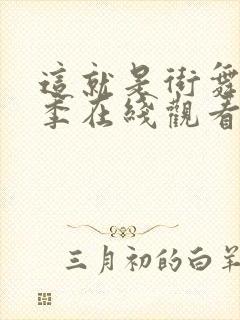 這就是街舞
季在綫觀看
三月初的白羊